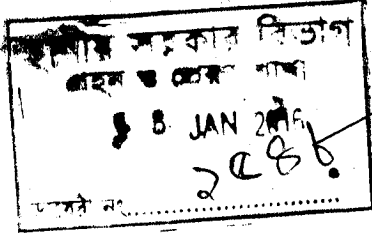 স্থানীয় সরকার বিভাগ
গ্রহন ও প্রেরণ শাখা
JAN 2016
ডায়েরী নং...........................